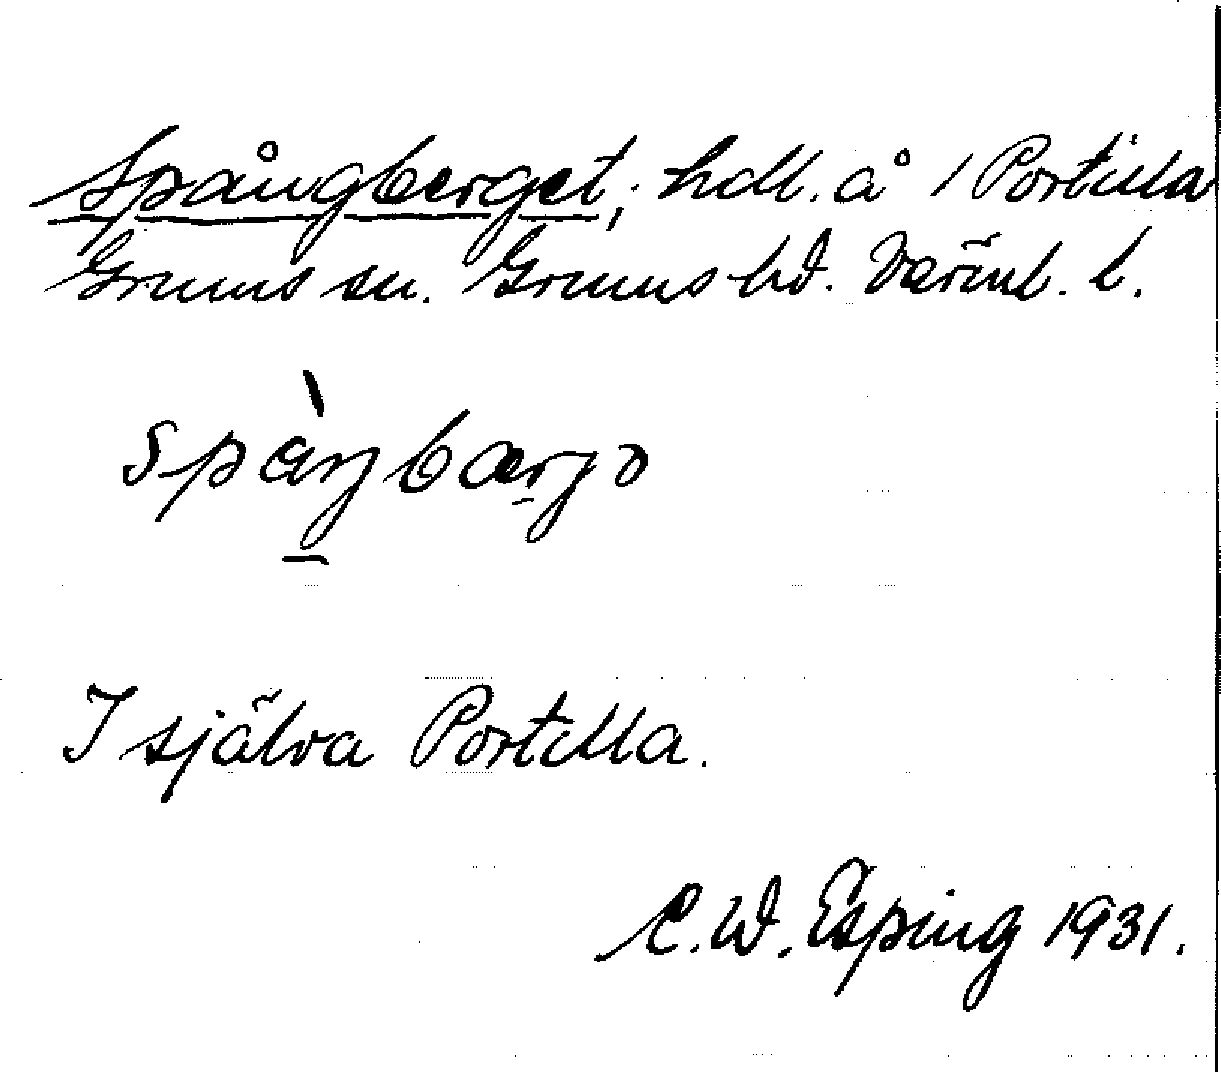 Spångberget; hdl. å 1 Portilla
Grums sn. Grums hd. Värml. l.
spàŋbærjɔ
I själva Portilla.
C. W. Esping 1931.